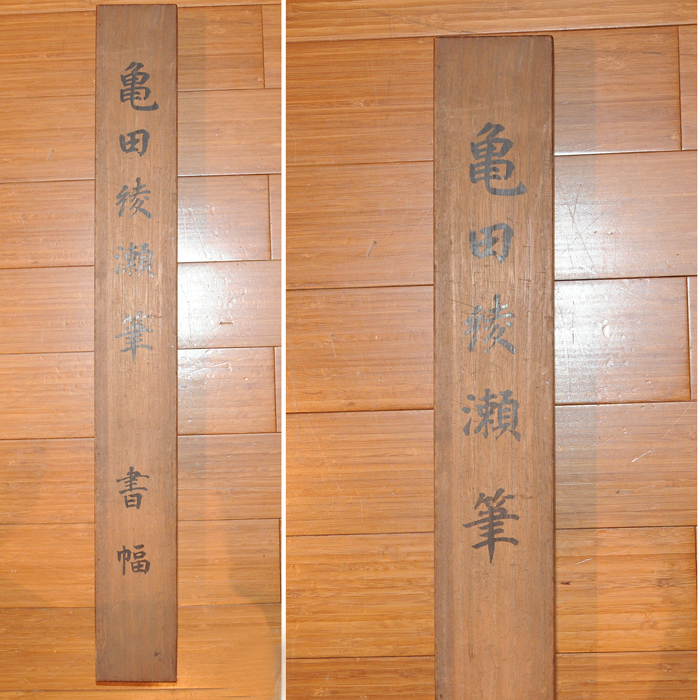 亀田綾瀬筆 書幅
亀田綾瀬筆